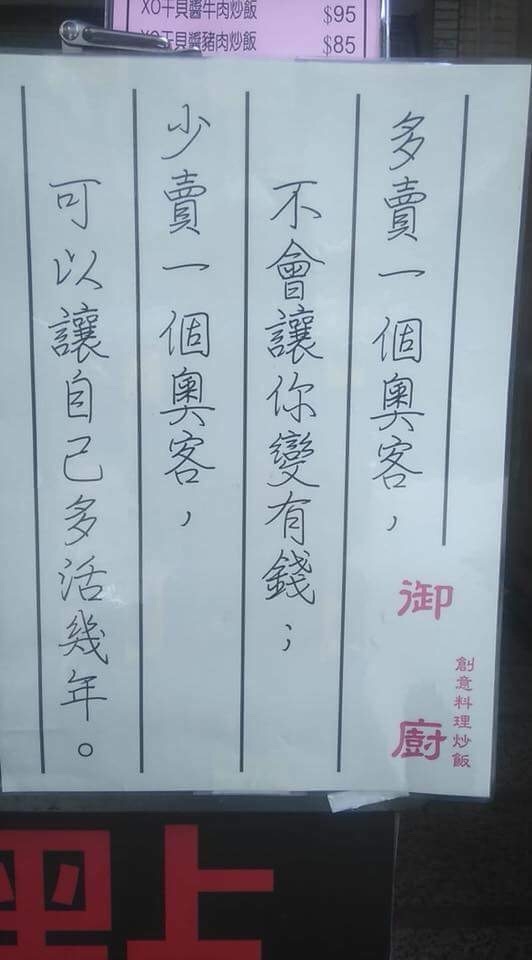 XO干貝醬牛肉炒飯 $95
XO干貝醬豬肉炒飯 $85
多賣一個奧客，
不會讓你變有錢；
少賣一個奧客，
可以讓自己多活幾年。
御廚
創意料理炒飯